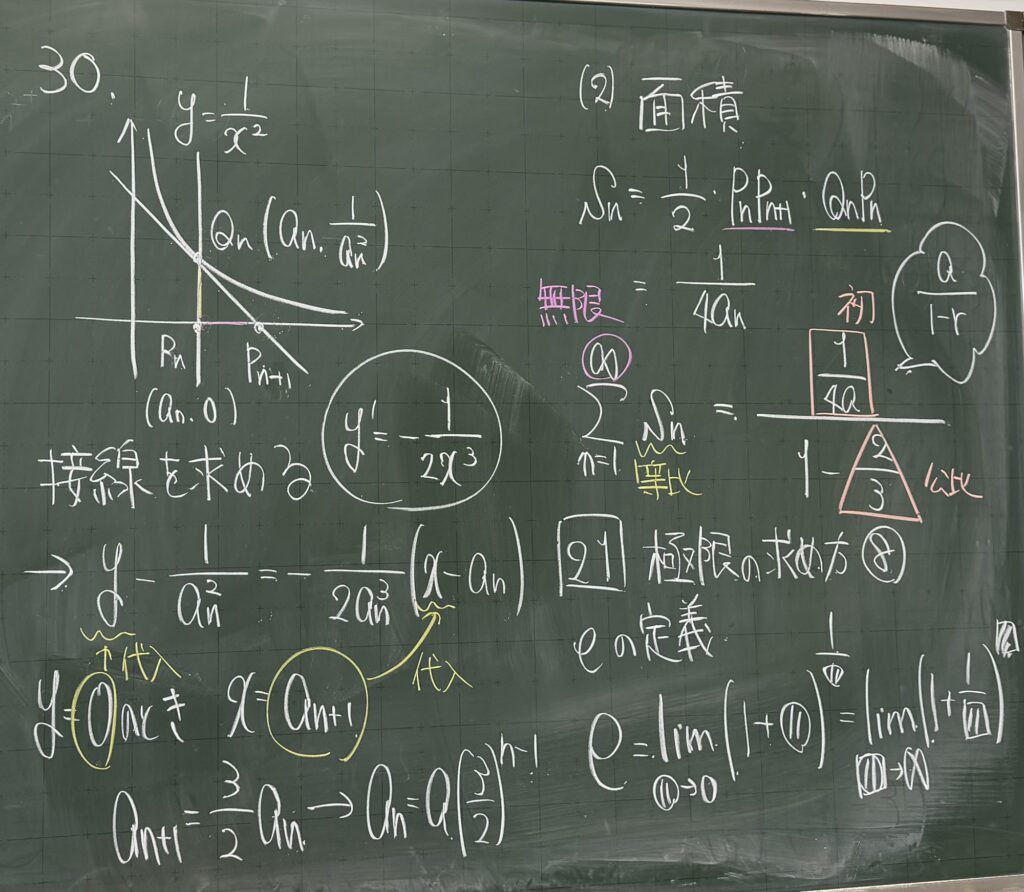 30.
y = 1/x²
Qn (an, 1/an²)
Pn
Pn+1
(an, 0)
接線を求める
y' = - 1/2x³
→ y - 1/an² = - 1/2an³ (x - an)
↑代入
代入
y = 0 のとき x = an+1
an+1 = 3/2 an → an = a(3/2)^(n-1)
(2) 面積
Sn = 1/2 · PnPn+1 · QnPn
= 1/4an
a/1-r
無限
初
∞ Σ n=1 Sn = 1/4a / 1 - 2/3
等比
公比
21 極限の求め方 ⑧
eの定義
e = lim ○→0 (1 + ○)^(1/○) = lim □→∞ (1 + 1/□)^□